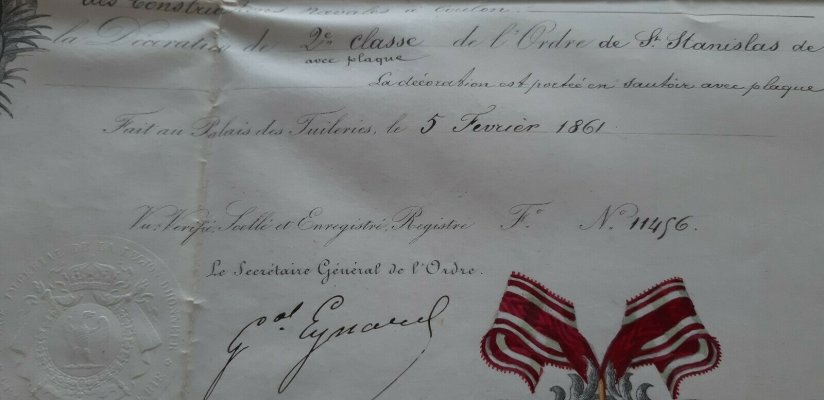 des Constructions navales à Toulon.
la Décoration de 2e classe de l'Ordre de St. Stanislas de
avec plaque
La décoration est portée en sautoir avec plaque
Fait au Palais des Tuileries, le 5 Fevrièr 1861.
Vu, Vérifié, Scellé et Enregistré, Registre Fo. No. 11456.
Le Secrétaire Général de l'Ordre.
Gal Eynard